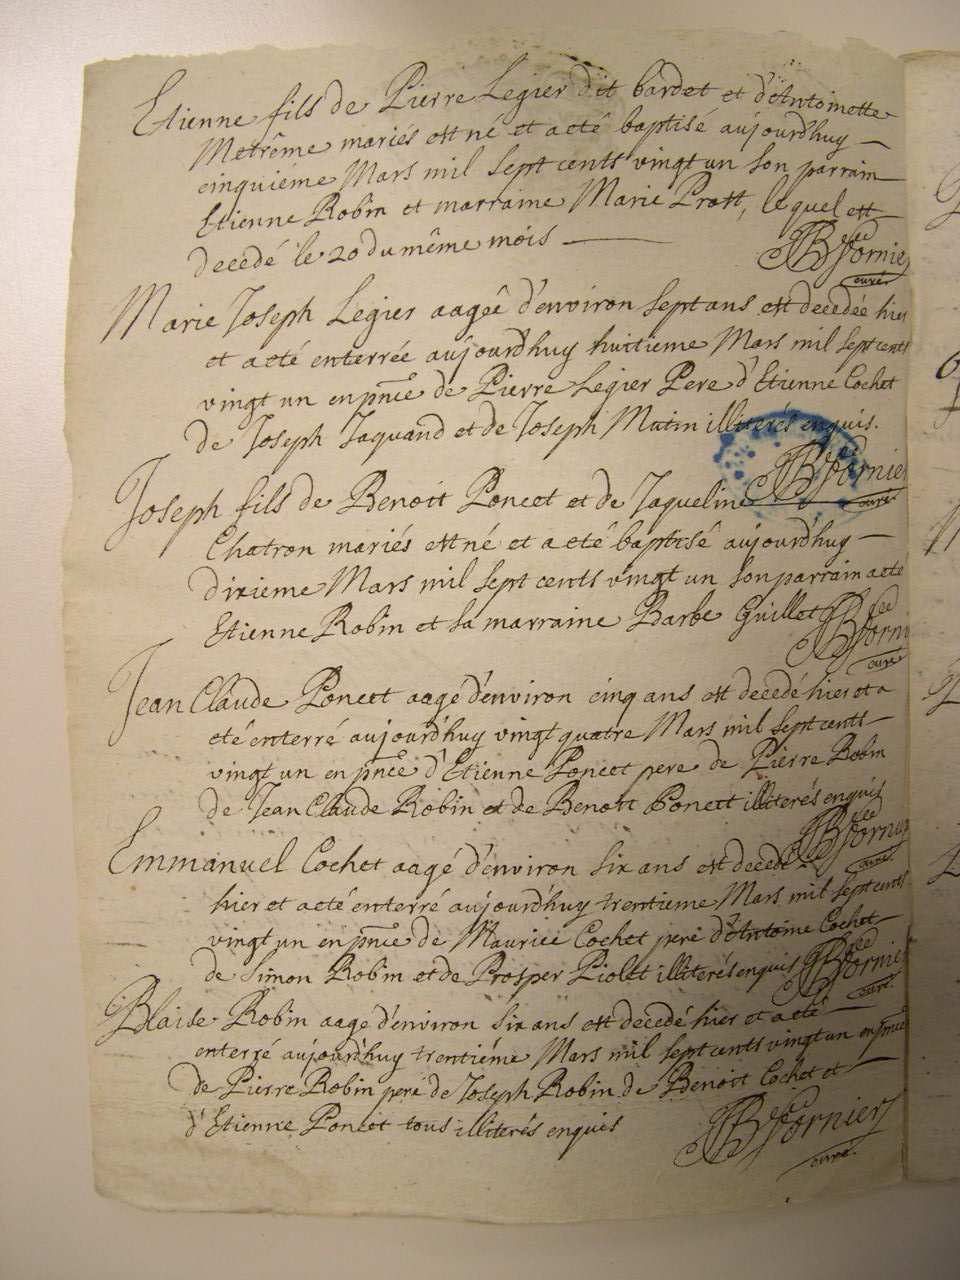 Etienne fils de Pierre Legier dit bardet et d'Antoinette
Metrême mariés est né et a eté baptisé aujourd'huy
cinquieme Mars mil sept cents vingt un son parrain
Etienne Robin et marraine Marie Prost, lequel est
decedé le 20 du même mois
Fornier
curé
Marie Joseph Legier aageê d'environ sept ans est decedée hier
et a eté enterrée aujourd'huy huitieme Mars mil sept cents
vingt un en pnce de Pierre Legier Pere d'Etienne Cochet
de Joseph Jaquand et de Joseph Matin illiterés enquis.
Fornier
curé
Joseph fils de Benoit Poncet et de Jaqueline
Chatron mariés est né et a eté baptisé aujourd'huy
dixieme Mars mil sept cents vingt un son parrain a eté
Etienne Robin et sa marraine Barbe Guillet
Forni
curé
Jean Claude Poncet aagé d'environ cinq ans est decedé hier et a
eté enterré aujourd'huy vingt quatre Mars mil sept cents
vingt un en pnce d'Etienne Poncet pere de Pierre Robin
de Jean Claude Robin et de Benoit Poncet illiterés enquis
Fornier
curé
Emmanuel Cochet aagé d'environ six ans est decedé
hier et a eté enterré aujourd'huy trentieme Mars mil sept cents
vingt un en pnce de Maurice Cochet pere d'Antoine Cochet
de Simon Robin et de Prosper Piolet illiterés enquis
Fornier
curé
Blaise Robin aagé d'environ six ans est decedé hier et a eté
enterré aujourd'huy trentiéme Mars mil sept cents vingt un en pnce
de Pierre Robin pere de Joseph Robin de Benoit Cochet et
d'Etienne Poncet tous illiterés enquis
Fornier
curé